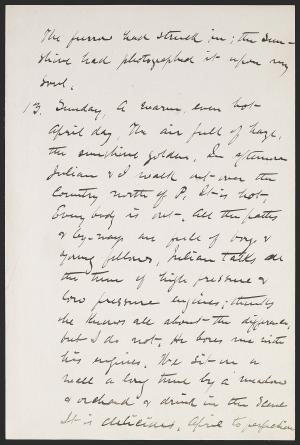 The furrow had struck in; the sun-
shine had photographed it upon my
soul.
13. Sunday, A warm, even hot
April day, The air full of haze,
the sunshine golden. In afternoon
Julian & I walk out over the
Country north of P. It is hot,
Everybody is out. All the paths
& by-ways are full of boys &
young fellows, Julian talks all
the time of high pressure &
low pressure engines; thinks
he knows all about the difference,
but I do not. He bores me with
his engines. We sit on a
wall a long time by a meadow
& orchard & drink in the scene
It is delicious, April to perfection